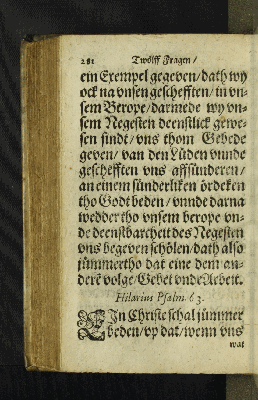 281 Twölff Fragen/
ein Exempel gegeven/dath wy
ock na vnsen geschefften/in vn-
sem Berope/darmede wy vn-
sem Negesten deenstlick gewe-
sen sindt/vns thom Gebede
geven/van den Lüden vnnde
geschefften vns affsünderen/
an einem sünderliken ördeken
tho Godt beden/vnnde darna
wedder tho vnsem berope vn-
de deenstbarcheit des Negesten
vns begeven schölen/dath also
jümmertho dat eine dem an-
derē volge/Gebet vnde Arbeit.
Hilarius Psalm. 63.
EIn Christe schal jümmer
beden/vp dat/wenn vns
wat